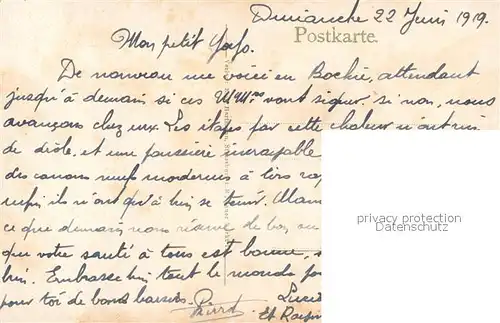 Dimanche 22 Juin 1919.
Postkarte.
Mon petit
De nouveau me voici en Bochie, attendant
jusqu'à demain si ces M rs vont signer. si non, nous
avançons chez eux. Les étapes par cette chaleur n'ont rien
de drôle, et une poussière incroyable
des canons neufs modernes à tirs
enfin ils n'ont qu'à bien se tenir.
ce que demain nous réserve de bon, ou
que votre santé à tous est bonne,
bien. Embrasse bien tout le monde
pour toi de bons baisers. Pierrot
Lucie
Et
privacy protection
Datenschutz